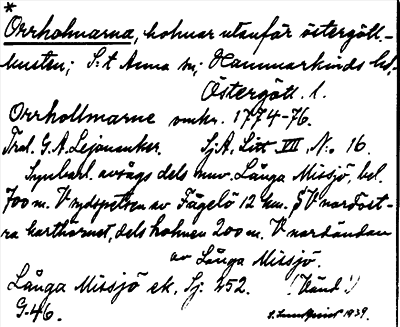 *
Orrholmarna, holmar utanför östergöt-
kusten; S:t Anna sn; Hammarkinds hd,
Östergötl. l.
Orrhollmarne omkr. 1774-76.
Trol. G. A. Lejonanker. SjA, Litt VII, No 16.
Synbarl. avsågs dels nuv. Långa Missjö, bel.
700 m. V sydspetsen av Fågelö 12 km. SV
ra karthörnet, dels holmen 200 m. V nordändan
av Långa Missjö.
Långa Missjö ek. Sj. 252. (Vänd!)
G-46. 1939.